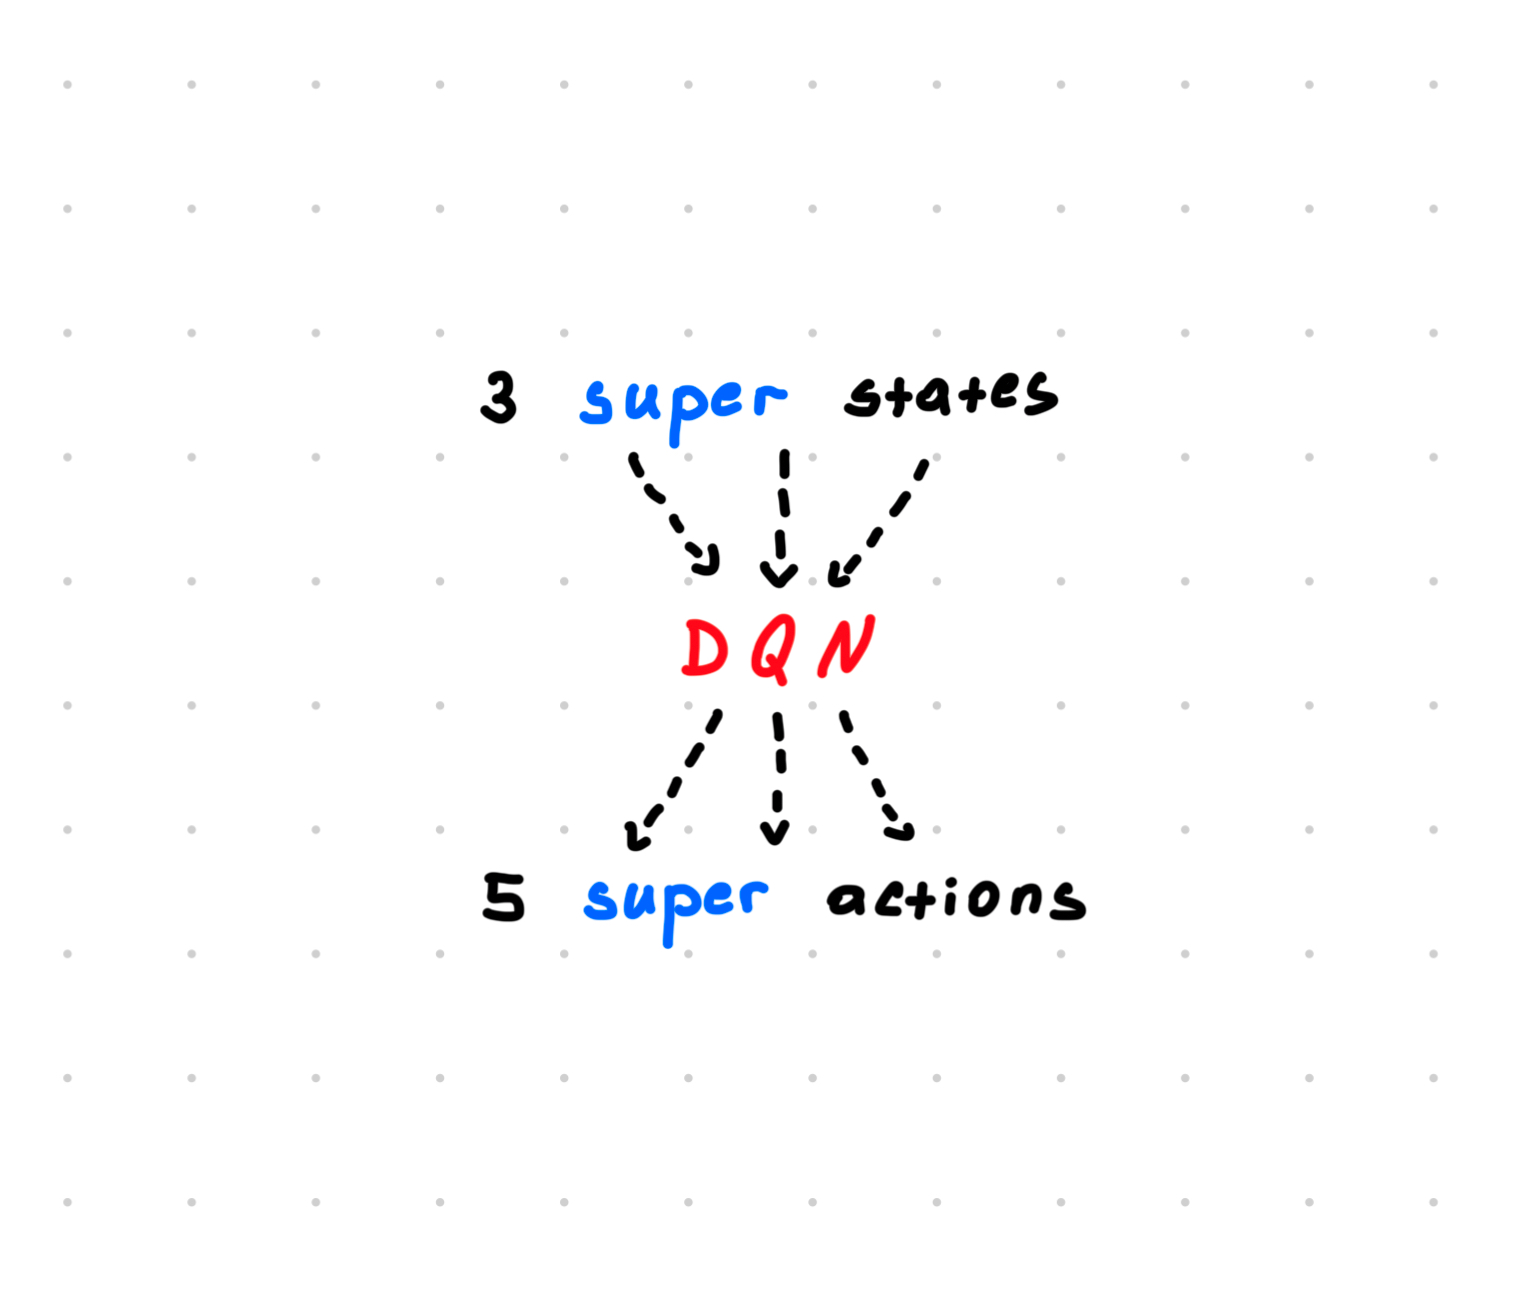 3 super states
DQN
5 super actions